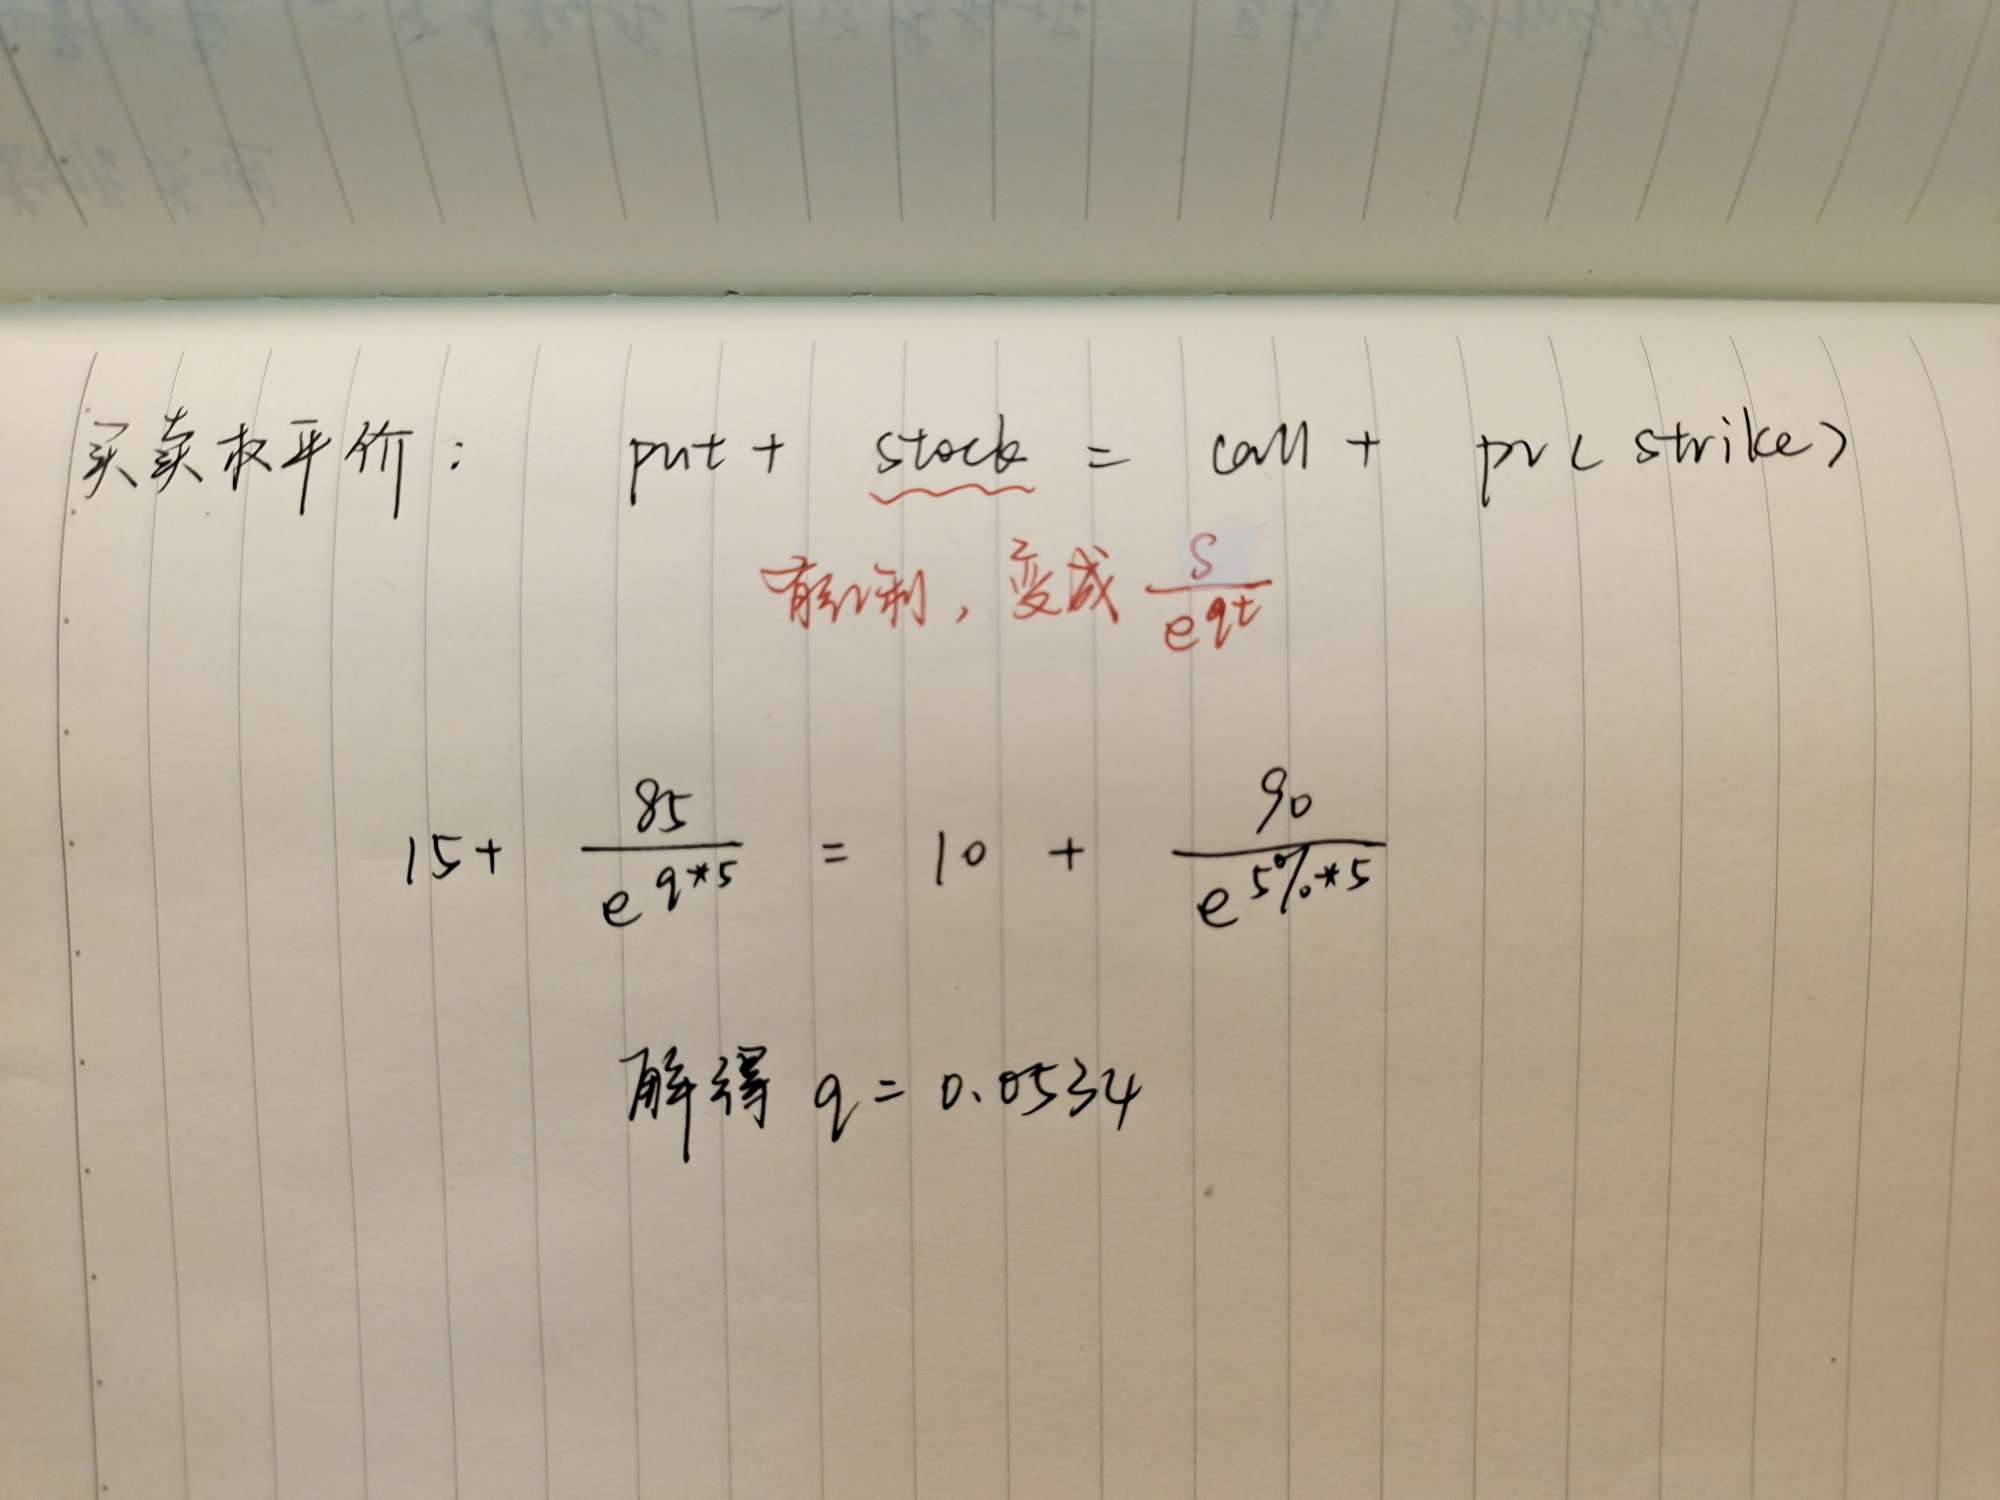 买卖权平价： put + stock = call + pv( strike )
有红利，变成 S/e^{qt}
15 + 85/e^{q*5} = 10 + 90/e^{5%*5}
解得 q = 0.0534